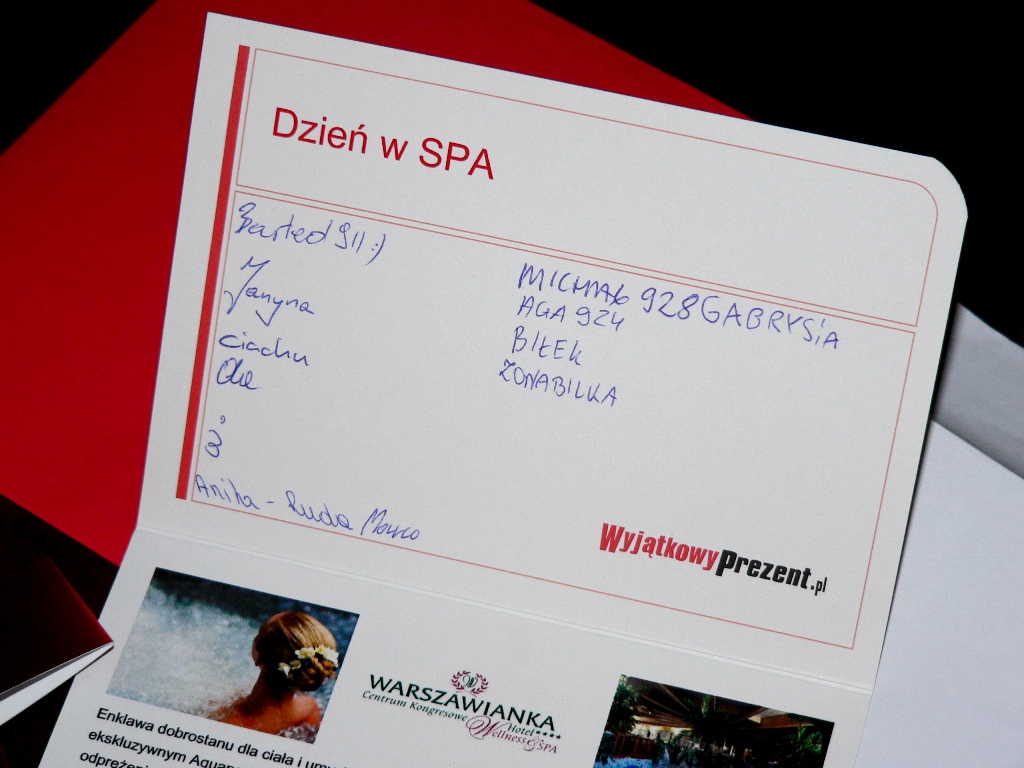 Dzień w SPA
Barted 911 :)
Janyna
ciachu
Ola
3
Anita - Ruda Mowco
MICHAŁ 928 GABRYSiA
AGA 924
BIŁEK
ŻONABILKA
WyjątkowyPrezent.pl
WARSZAWIANKA
Centrum Kongresowe
Hotel****
Wellness & SPA
Enklawa dobrostanu dla ciała i
ekskluzywnym